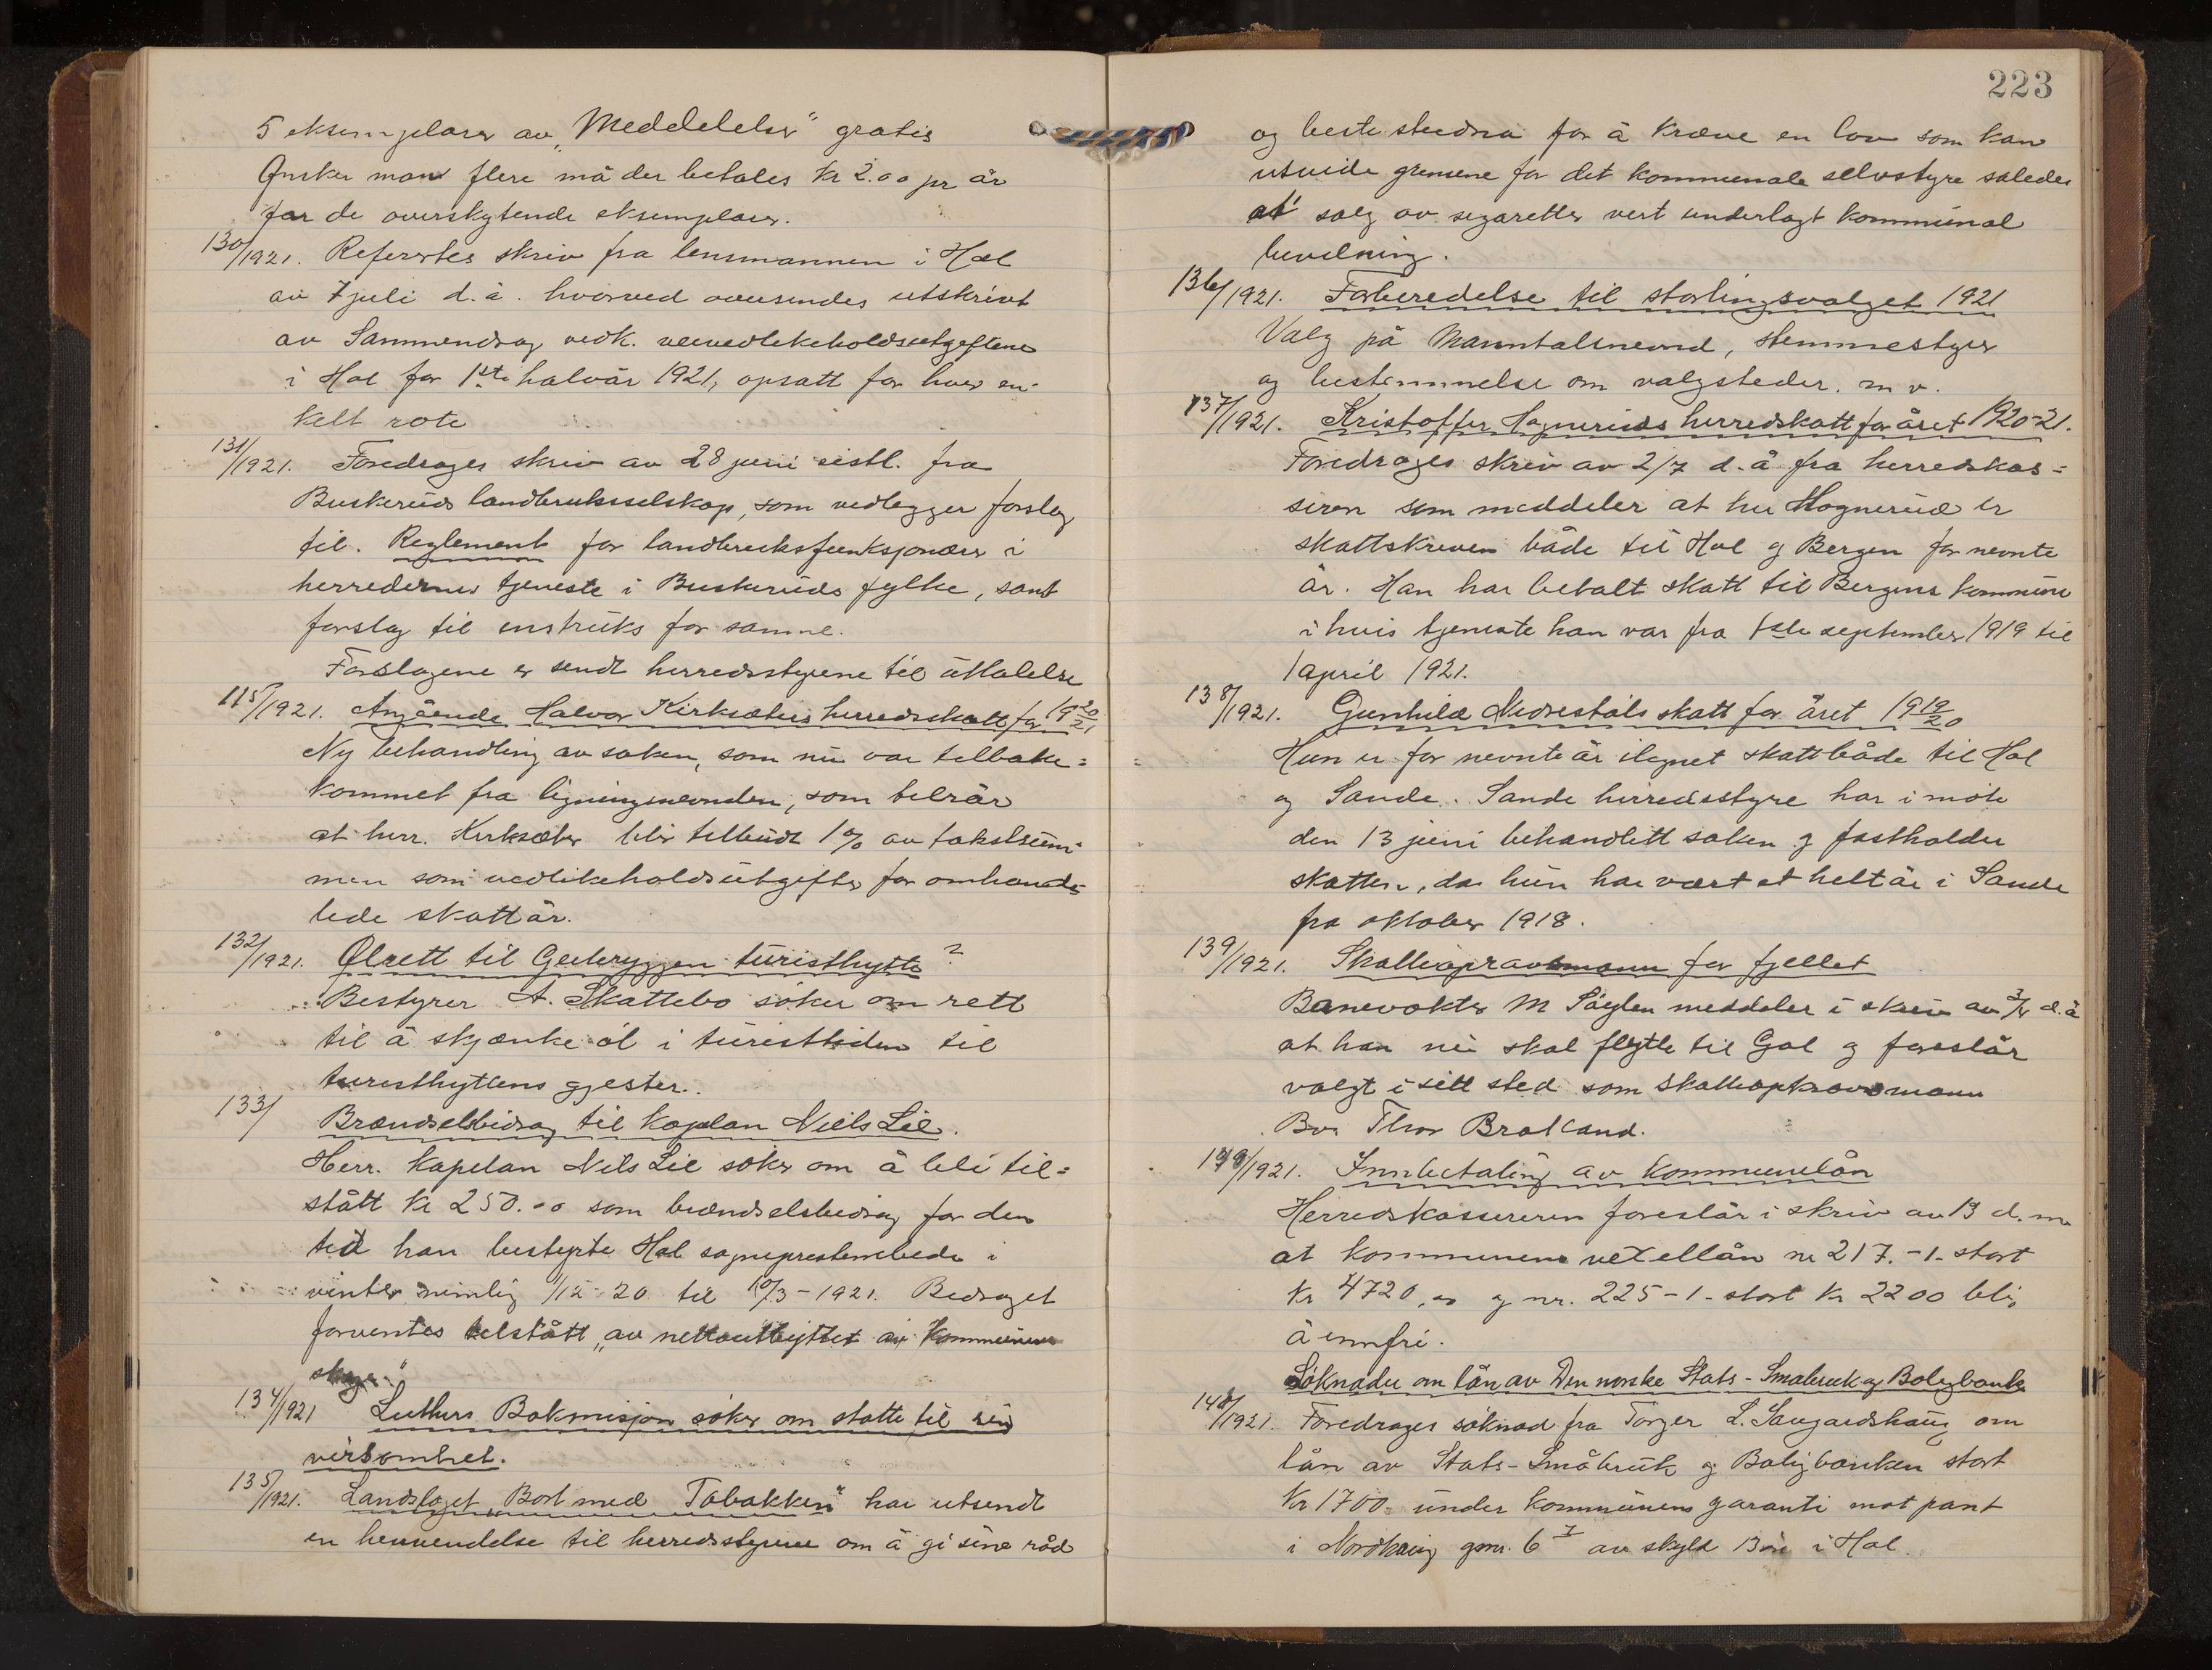 5 eksemplarer av „Meddelelser" gratis
Ønsker man flere må der betales kr 2.00 pr år
for de overskytende eksemplarer.
130/1921. Refertes skriv fra lensmannen i Hol
av 7 juli d.å. hvorved oversendes utskrivt
av Sammendrag vedk. veivedlikeholdsutgiftene
i Hol for 1ste halvår 1921, opsatt for hver en-
kelt rote
131/1921. Foredrages skriv av 28 juni sistl. fra
Buskeruds landbruksselskap, som vedlegger forslag
til. Reglement for landbruksfunksjonærer i
herredernes tjeneste i Buskeruds fylke, samt
forslag til instruks for samme.
Forslagene er sendt herredsstyrene til uttalelse
115/1921. Angående Halvor Kirksæters herredsskatt for 1920/21
Ny behandling av saken, som nu var tilbake=
kommet fra ligningsnevnden, som tilrår
at herr. Kirksæter blir tilbudt 1% av takstsum-
men som vedlikeholdsutgifter for omhand-
lede skattår.
132/1921. Ølrett til Geiteryggen turisthytte?
Bestyrer A. Skattebo søker om rett
til å skjænke øl i turisttiden til
turisthyttens gjester.
133/ Brændselsbidrag til kaplan Niels Lie.
Herr. kapelan Nils Lie søker om å bli til=
stått kr 250.00 som brændselsbidrag for den
tid han bestyrte Hol sogneprestembede i
vinter nemlig 1/12-20 til 10/3-1921. Bidraget
forventes tilstått „av nettoutbyttet av kommunens
skoge"
134/1921 Luthers Bokmisjon søker om støtte til sin
virksomhet.
135/1921. Landslaget „Bort med Tobakken" har utsendt
en henvendelse til herredsstyrene om å gi sine råd
223
og beste stedna for å kræve en lov som kan
utvide grensene for det kommunale selvstyre således
at salg av sigaretter vert underlagt kommunal
bevilning.
136/1921. Forberedelse til stortingsvalget 1921
Valg på Manntalsnevnd, stemmestyrer
og bestemmelse om valgsteder. m v.
137/1921. Kristoffer Hagneruds herredskatt for året 1920-21.
Foredrages skriv av 2/7 d.å fra herredskas=
seren som meddeler at hr Hognerud er
skattskreven både til Hol og Bergen for nevnte
år. Han har betalt skatt til Bergens kommune
i hvis tjeneste han var fra 1ste september 1919 til
1 april 1921.
138/1921. Gunhild Nedrestøls skatt for året 1919/20
Hun er for nevnte år ilignet skatt både til Hol
og Sande. Sande herredsstyre har i møte
den 13 juni behandlett saken og fastholder
skatten, da hun har vært et helt år i Sande
fra oktober 1918.
139/1921. Skatteopravsmann for fjellet
Banevokter M Søgten meddeler i skriv av d.å
at han nu skal flytte til Gol og foreslår
valgt i sitt sted som skatteopkravsmann
Bvr. Thor Brakand.
149/1921. Innbetaling av kommunelån
Herredskassereren foreslår i skriv av 13 d.m.
at kommunens vexellån nr 217.-1- stort
kr 4720,00 og nr. 225-1- stort kr 2200 blir
å innfri.
Søknader om lån av Den norske Stats-Småbruk og Boligbank
148/1921. Foredrages søknad fra Torger L. Saugardshaug om
lån av Stats-Småbruk og Boligbanken stort
kr 1700. under kommunens garanti mot pant
i Nordhaug gnr. 6 av skyld 13 i Hol.